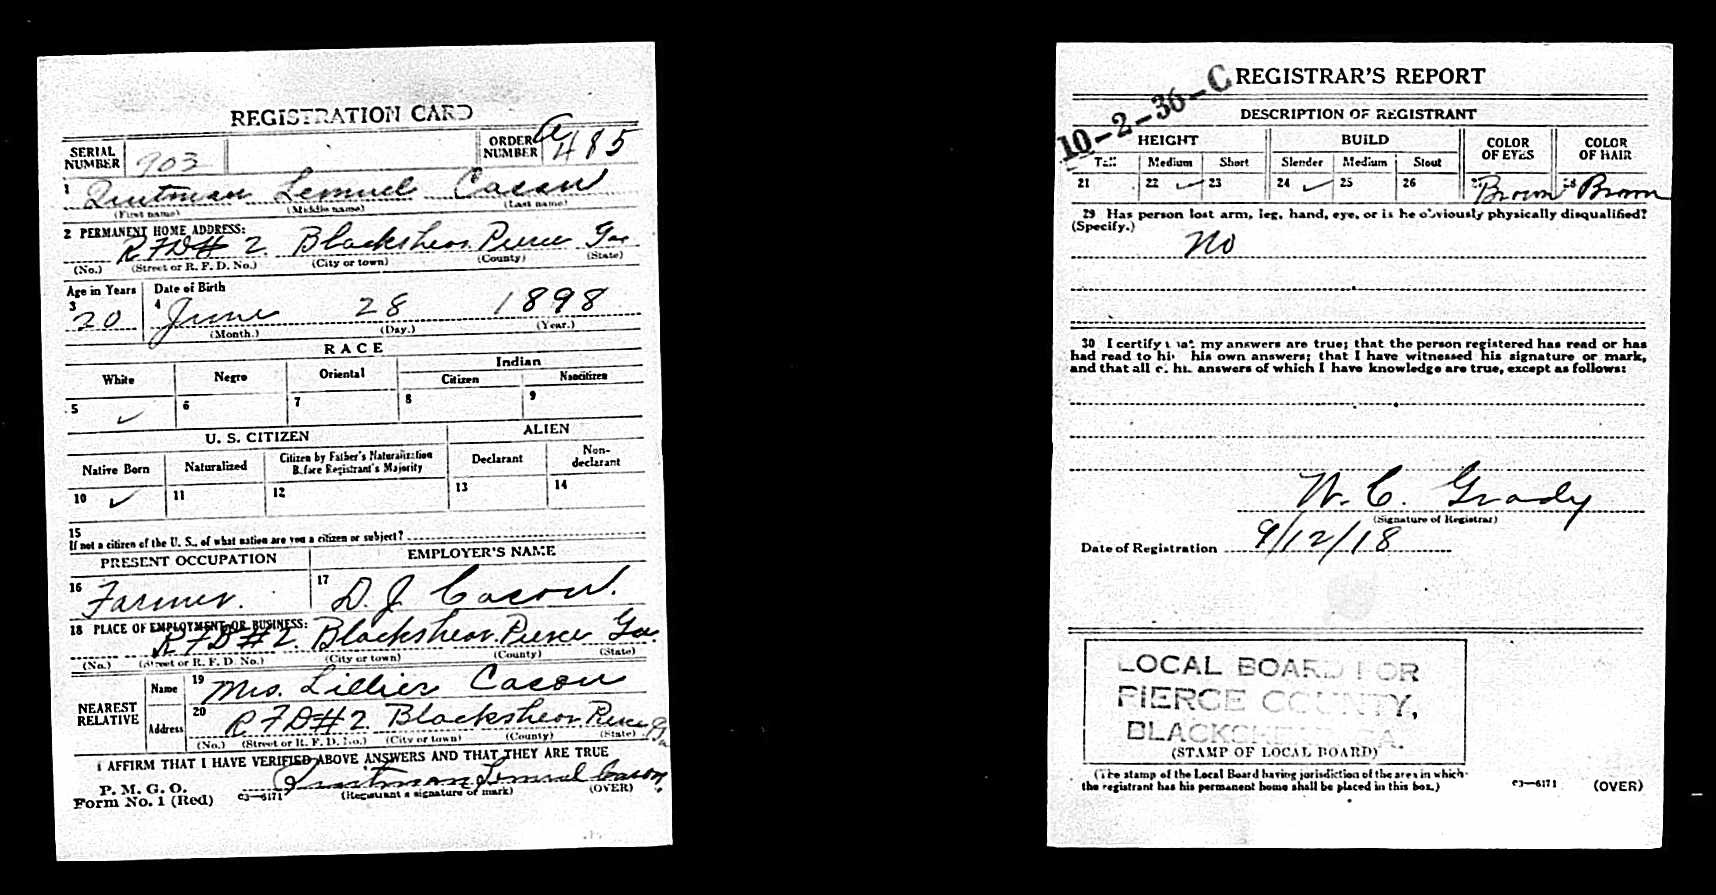 REGISTRATION CARD
SERIAL NUMBER 903 ORDER NUMBER A 485
1 Quitman Lemuel Cason
(First name) (Middle name) (Last name)
2 PERMANENT HOME ADDRESS:
R F D # 2 Blackshear Pierce Ga
(No.) (Street or R. F. D. No.) (City or town) (County) (State)
Age in Years Date of Birth
3 20 4 June 28 1898
(Month.) (Day.) (Year.)
RACE
White Negro Oriental Indian
Citizen Noncitizen
5 ✓ 6 7 8 9
U. S. CITIZEN ALIEN
Native Born Naturalized Citizen by Father's Naturalization Before Registrant's Majority Declarant Non-declarant
10 ✓ 11 12 13 14
15
If not a citizen of the U. S., of what nation are you a citizen or subject?
PRESENT OCCUPATION EMPLOYER'S NAME
16 Farmer. 17 D. J. Cason.
18 PLACE OF EMPLOYMENT OR BUSINESS:
R F D # 2. Blackshear Pierce Ga.
(No.) (Street or R. F. D. No.) (City or town) (County) (State)
NEAREST RELATIVE Name 19 Mrs. Lillier Cason
Address 20 R F D # 2 Blackshear Pierce Ga
(No.) (Street or R. F. D. No.) (City or town) (County) (State)
I AFFIRM THAT I HAVE VERIFIED ABOVE ANSWERS AND THAT THEY ARE TRUE
P. M. G. O.
Form No. 1 (Red) C3—6171 Quitman Lemuel Cason.
(Registrant's signature or mark) (OVER)
10-2-36-C REGISTRAR'S REPORT
DESCRIPTION OF REGISTRANT
HEIGHT BUILD COLOR OF EYES COLOR OF HAIR
Tall Medium Short Slender Medium Stout
21 22 ✓ 23 24 ✓ 25 26 27 Brown 28 Brown
29 Has person lost arm, leg, hand, eye, or is he obviously physically disqualified?
(Specify.) No
30 I certify that my answers are true; that the person registered has read or has
had read to him his own answers; that I have witnessed his signature or mark,
and that all of his answers of which I have knowledge are true, except as follows:
W. C. Grady
(Signature of Registrar)
Date of Registration 9/12/18
LOCAL BOARD FOR
PIERCE COUNTY,
BLACKSHEAR, GA.
(STAMP OF LOCAL BOARD)
(The stamp of the Local Board having jurisdiction of the area in which
the registrant has his permanent home shall be placed in this box.) C3—6171 (OVER)